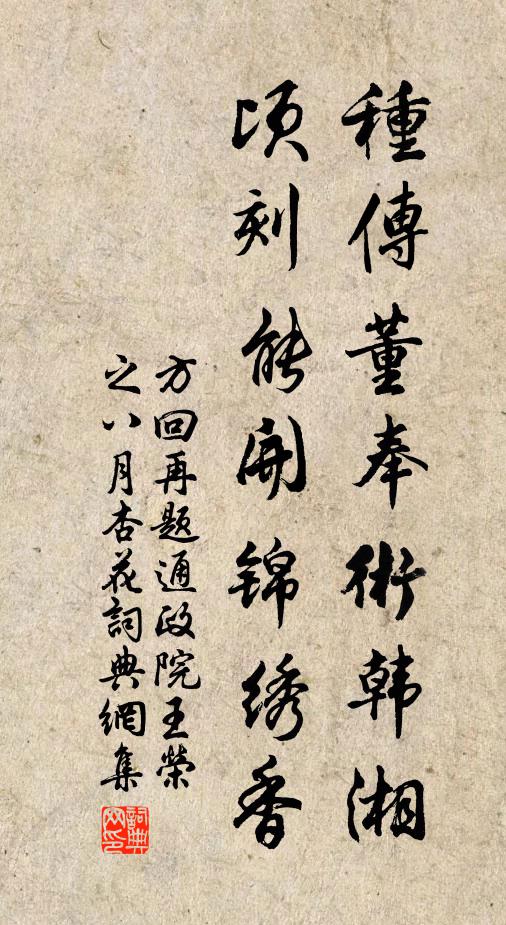 種傳董奉術韩湘
顷刻能開锦绣香
方回再题通政院王榮
之八月杏花詞典網集
詞典網印